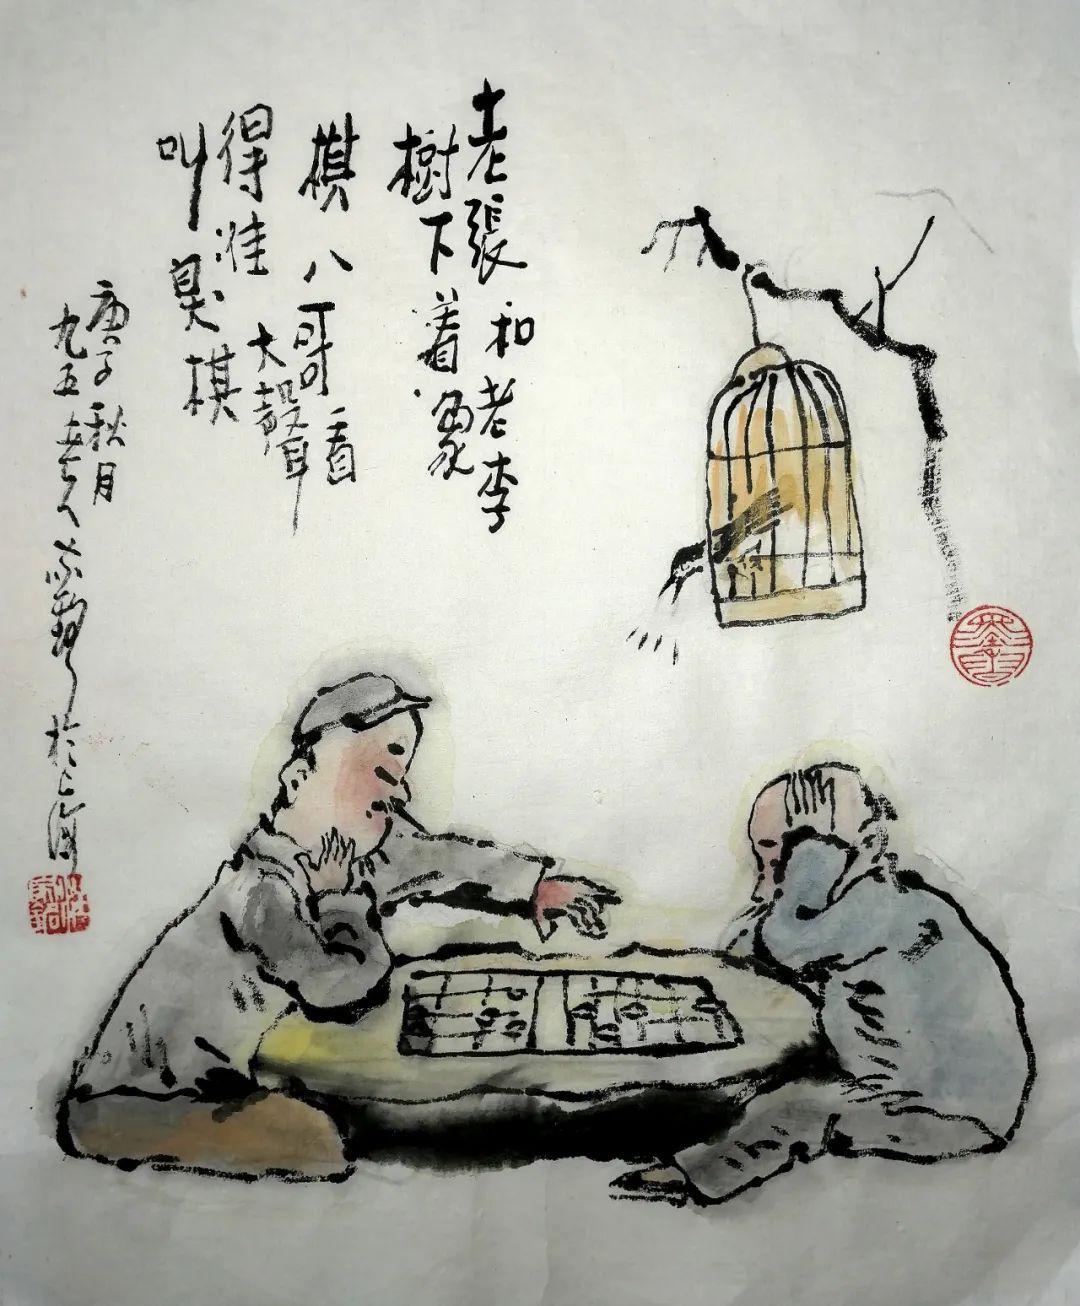 老張和老李
樹下着象
棋八哥看
得准大聲
叫臭棋
庚子秋月
九五 於上海